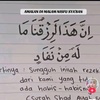 AMALAN DI MALAM NISFU SYA'BAN
إِنَّ هَذَا لَرِزْقُنَا مَا
لَهُ مِنْ نَفَادٍ
Artinya : Sungguh inilah rezeki
dari kami yang tidak
ada habis-habisnya
(Surah Shad Ayat